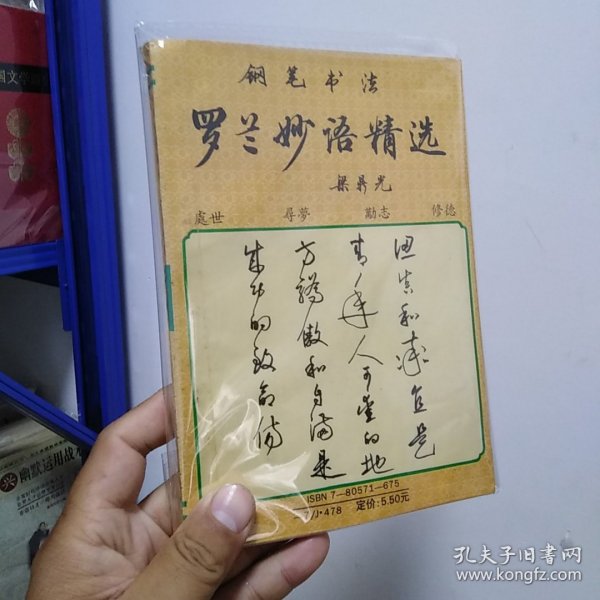 钢笔书法
罗兰妙语精选
梁鼎光
處世 尋夢 勵志 修德
温良和谦虚是
青年人可爱的地
方骄傲和自满是
成功的致命伤
ISBN 7—80571—675
J·478 定价:5.50元
国文学
幽默运用故
孔夫子旧书网
www.kongfz.com